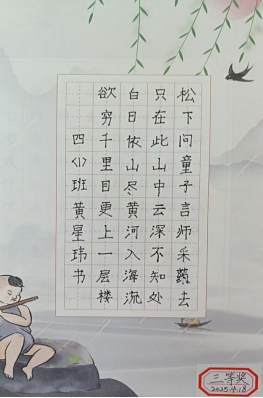 松下问童子言师采药去
只在此山中云深不知处
白日依山尽黄河入海流
欲穷千里目更上一层楼
四〈1〉班黄星玮书
三等奖
2025.4.18